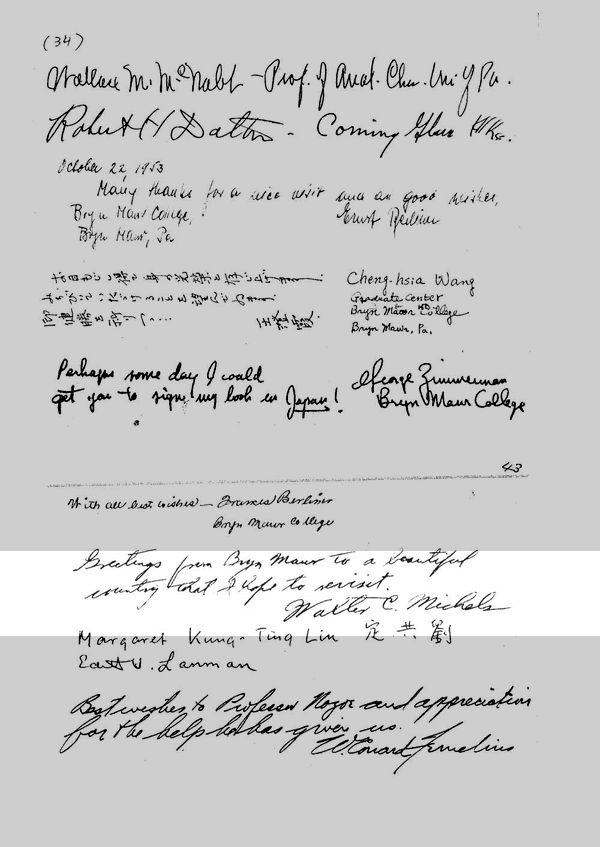 (34)
Wallace M. McNabb - Prof. of Anal. Chem. Uni. of Pa.
Robert H Dalton - Corning Glass Wks.
October 22, 1953
Many thanks for a nice visit and an good wishes,
Bryn Mawr College, Ernst Berliner
Bryn Mawr, Pa
Cheng-hsia Wang
Graduate Center
Bryn Mawr College
Bryn Mawr, Pa.
Perhaps some day I could
get you to sign my book in Japan!
George Zimmerman
Bryn Mawr College
43
With all best wishes - Frances Berliner
Bryn Mawr College
Greetings from Bryn Mawr to a beautiful
country that I hope to revisit.
Walter C. Michels
Margaret Kung-Ting Liu 定共劉
East W. Lanman
Best wishes to Professor Nozoe and appreciation
for the help he has given us.
W. Conard Fernelius